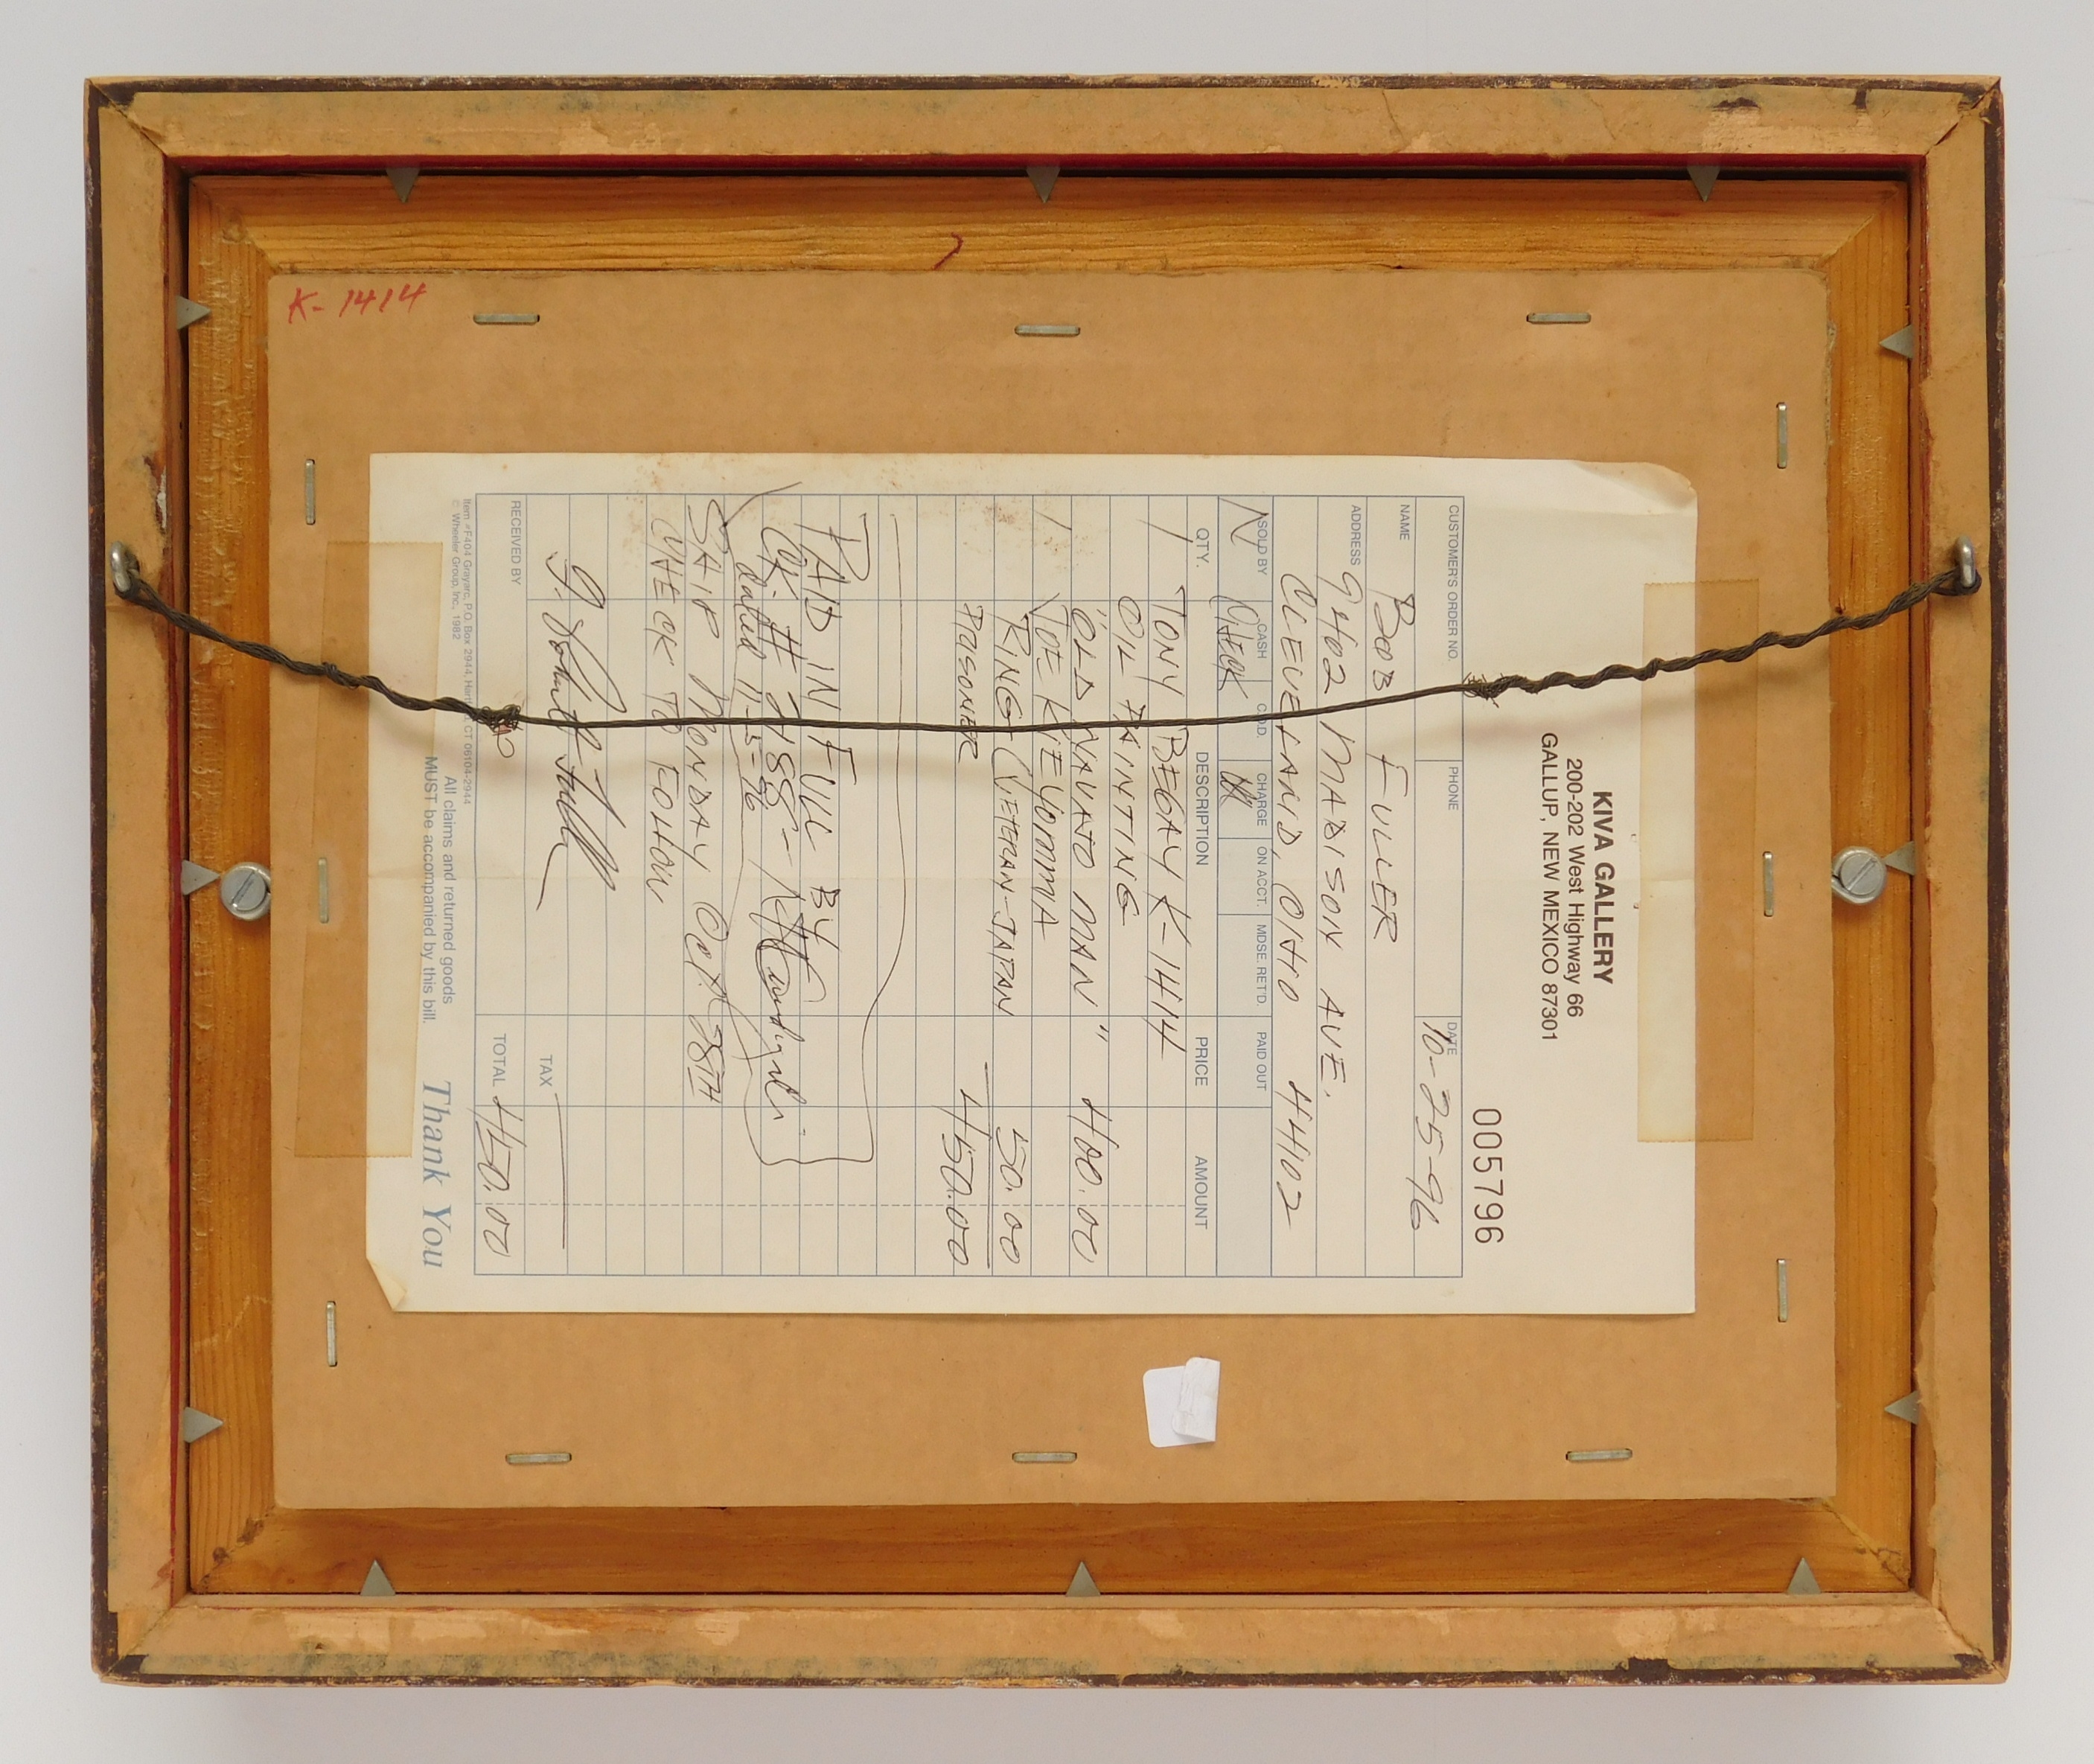 K-1414
KIVA GALLERY
200-202 West Highway 66
GALLUP, NEW MEXICO 87301
005796
CUSTOMER'S ORDER NO. PHONE DATE 10-25-96
NAME BOB FULLER
ADDRESS 9402 MADISON AVE.
CLEVELAND, OHIO 44102
SOLD BY CASH C.O.D. CHARGE ON ACCT. MDSE. RET'D. PAID OUT
N CHECK
QTY. DESCRIPTION PRICE AMOUNT
1 TONY BEGAY K-1414
OIL PAINTING
"OLD NAVAJO MAN" 400.00
1 JOE KIEYOOMMA
RING (VETERAN-JAPAN 50.00
PRISONER 450.00
PAID IN FULL BY
CK. # 2188-
dated 11-5-96
SHIP MONDAY Oct. 28TH
CHECK TO FOLLOW
TAX
RECEIVED BY TOTAL 450.00
Item #F404 Grayarc, P.O. Box 2944, Hart CT 06104-2944
© Wheeler Group, Inc., 1982
All claims and returned goods
MUST be accompanied by this bill.
Thank You